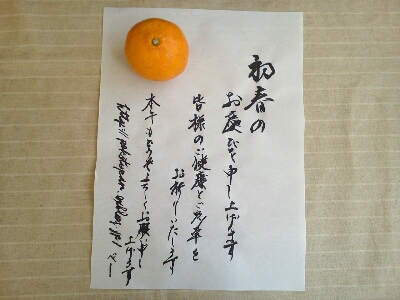 初春の
お慶びを申し上げます
皆様のご健康とご多幸を
お祈りいたします
本年もどうぞよろしくお願い申し
上げます